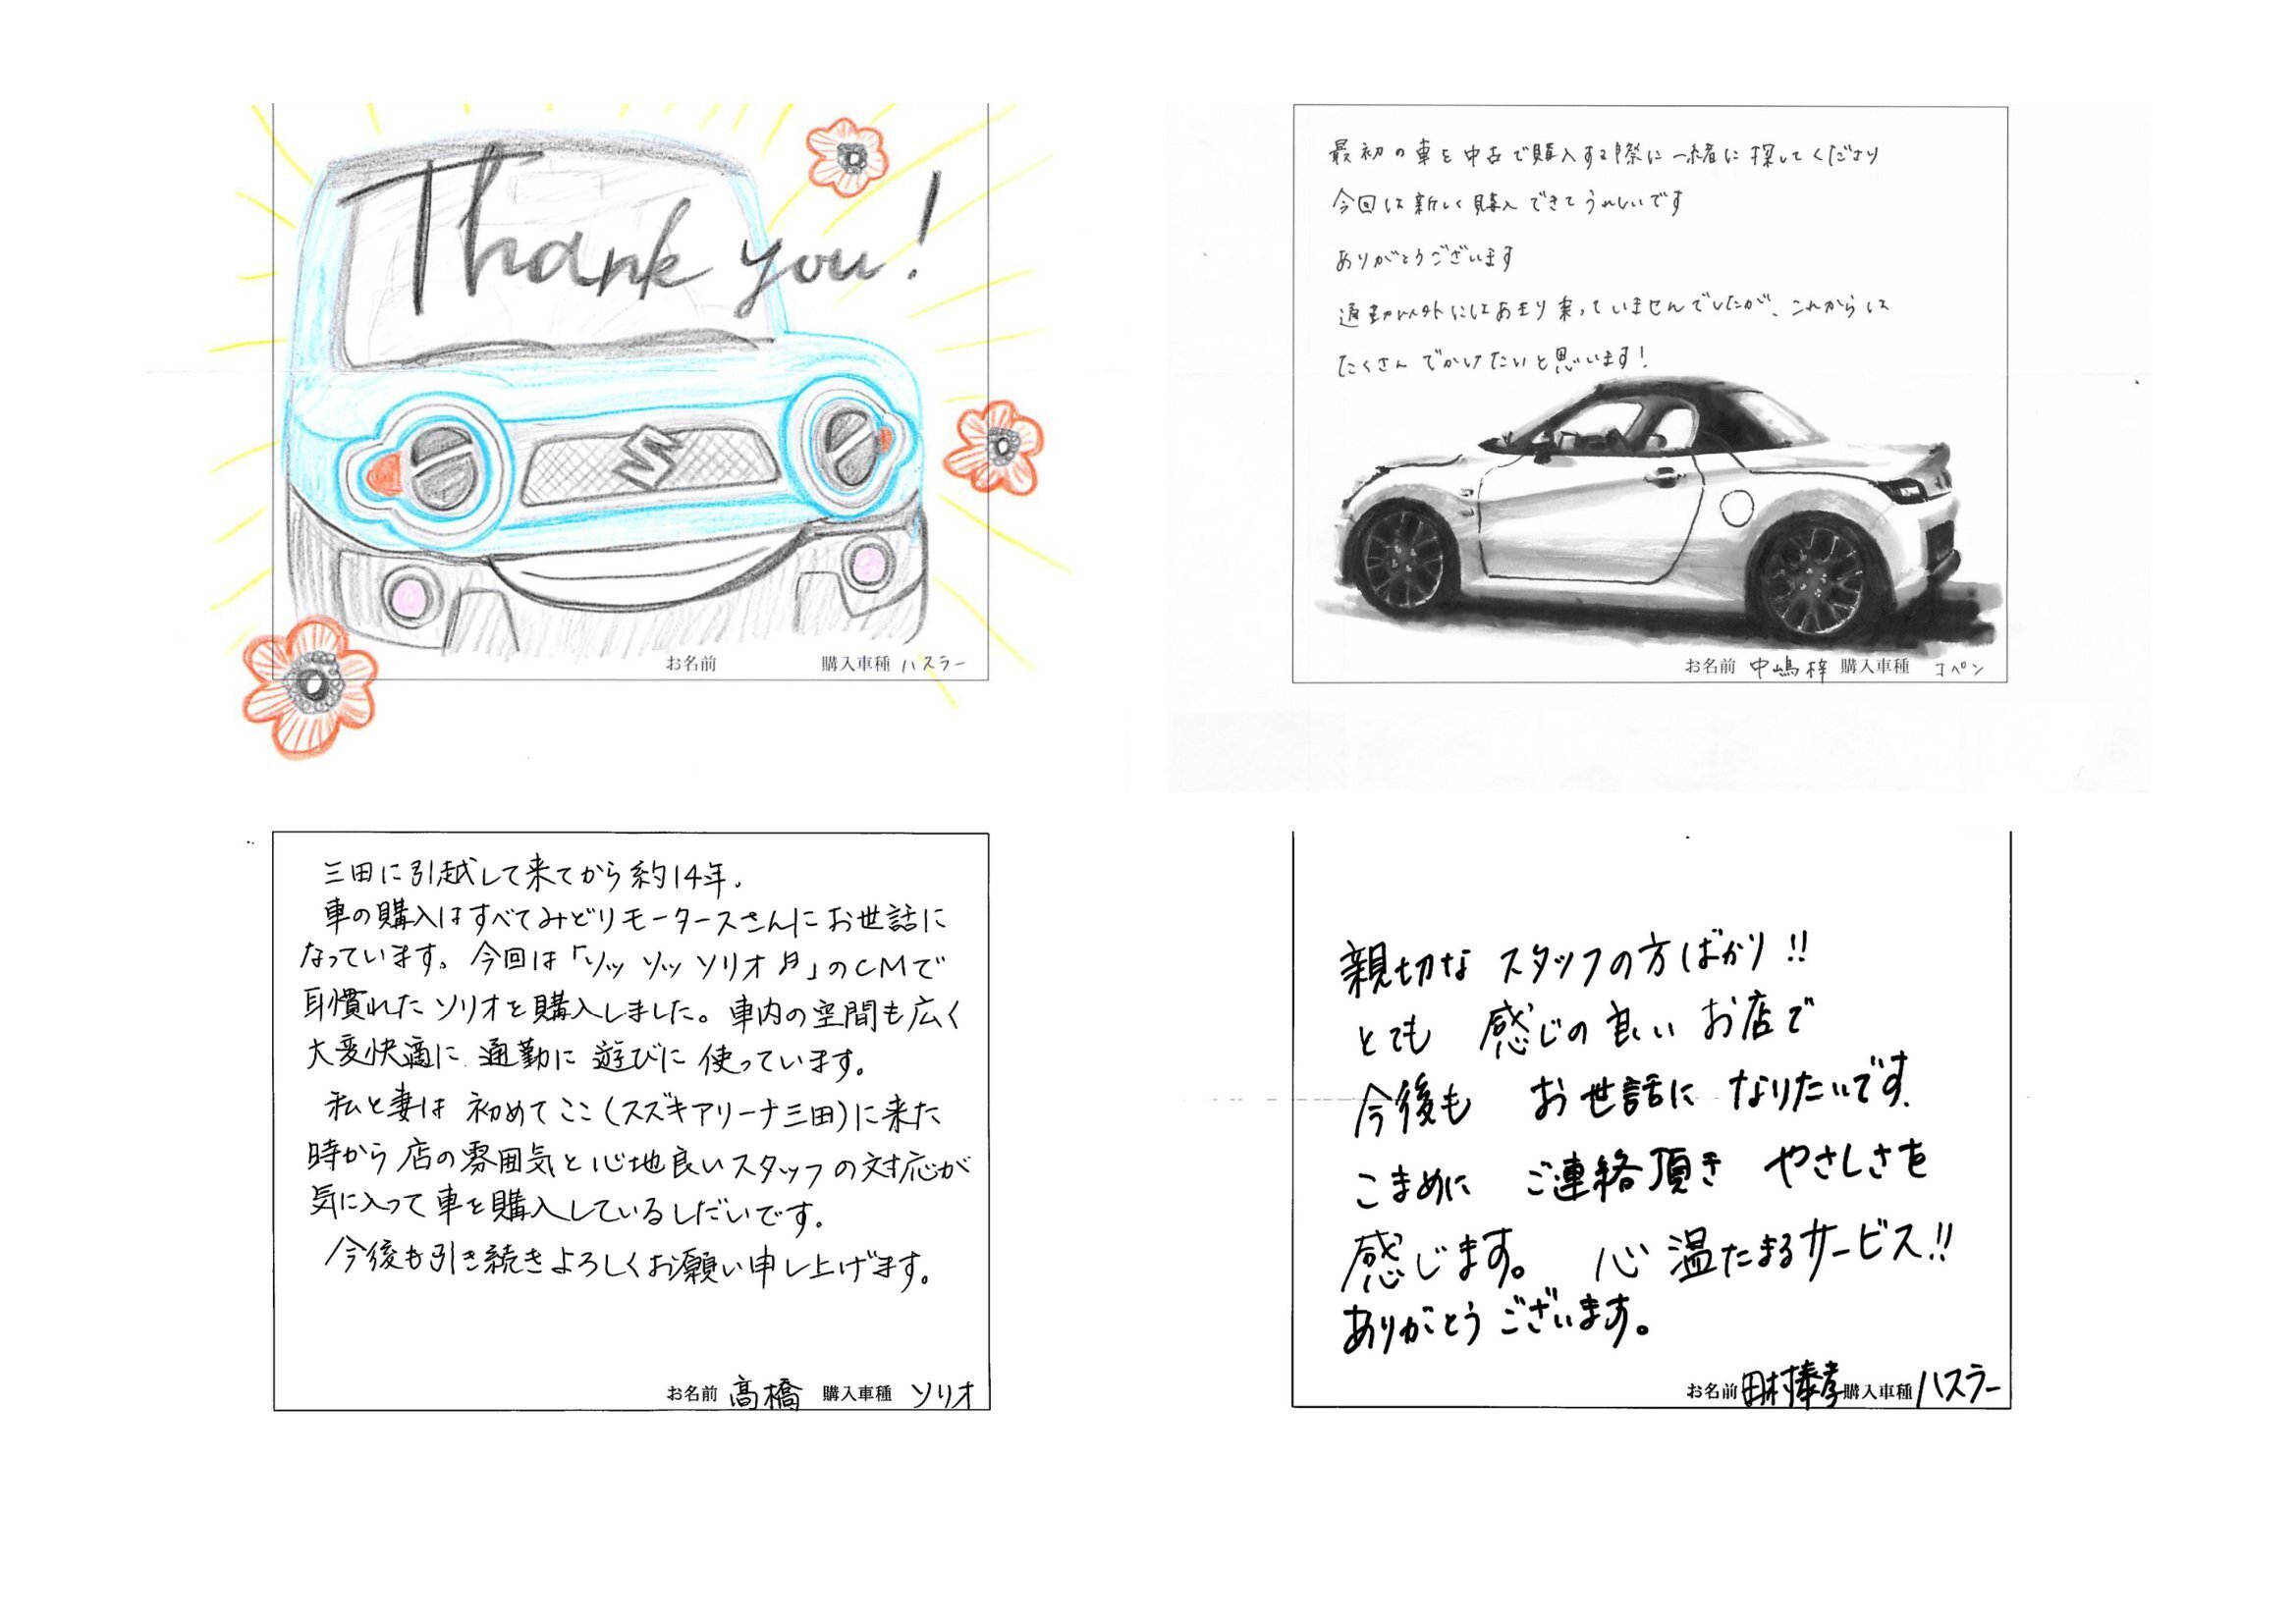 Thank you!
お名前 購入車種 ハスラー
最初の車を中古で購入する際に一緒に探してくださり
今回は新しく購入できてうれしいです
ありがとうございます
通勤以外にはあまり乗っていませんでしたが、これからは
たくさんでかけたいと思います!
お名前 中嶋梓 購入車種 コペン
三田に引越して来てから約14年。
車の購入はすべてみどりモータースさんにお世話に
なっています。今回は「ソッ ソッ ソリオ♬」のCMで
耳慣れたソリオを購入しました。車内の空間も広く
大変快適に 通勤に 遊びに 使っています。
私と妻は 初めてここ(スズキアリーナ三田)に来た
時から 店の雰囲気と心地良いスタッフの対応が
気に入って車を購入しているしだいです。
今後も引き続きよろしくお願い申し上げます。
お名前 髙橋 購入車種 ソリオ
親切な スタッフの方ばかり!!
とても 感じの良い お店で
今後も お世話に なりたいです。
こまめに ご連絡頂き やさしさを
感じます。 心温たまるサービス!!
ありがとうございます。
お名前 田村 購入車種 ハスラー